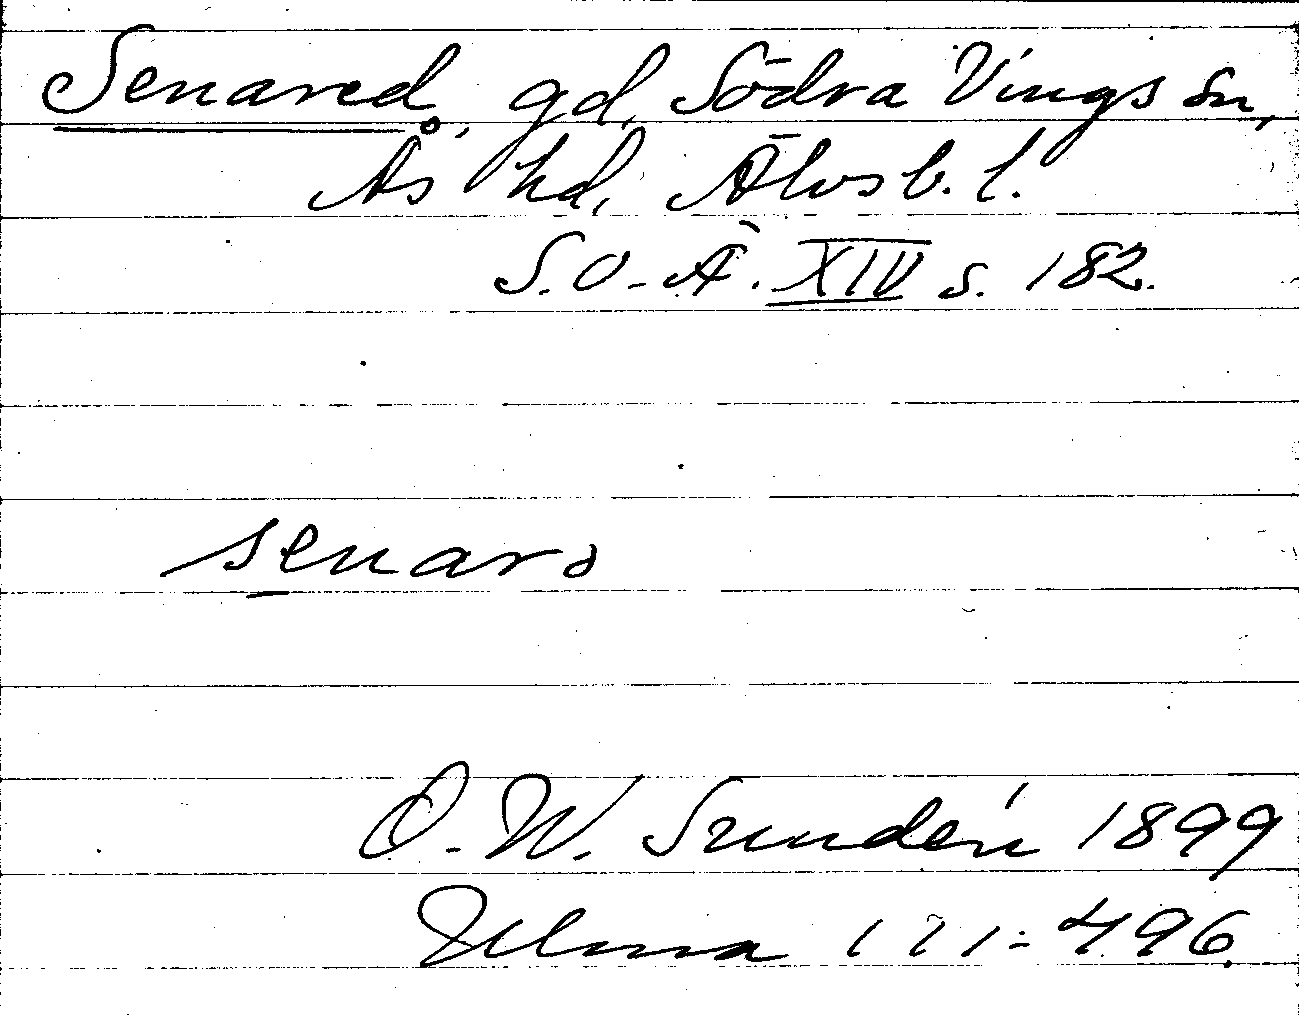 Senared, gd, Södra Vings sn,
Ås hd, Älvsb. l.
S.O.Ä. XIV s. 182.
senarə
O. W. Sundén 1899
Ulma 111:496.